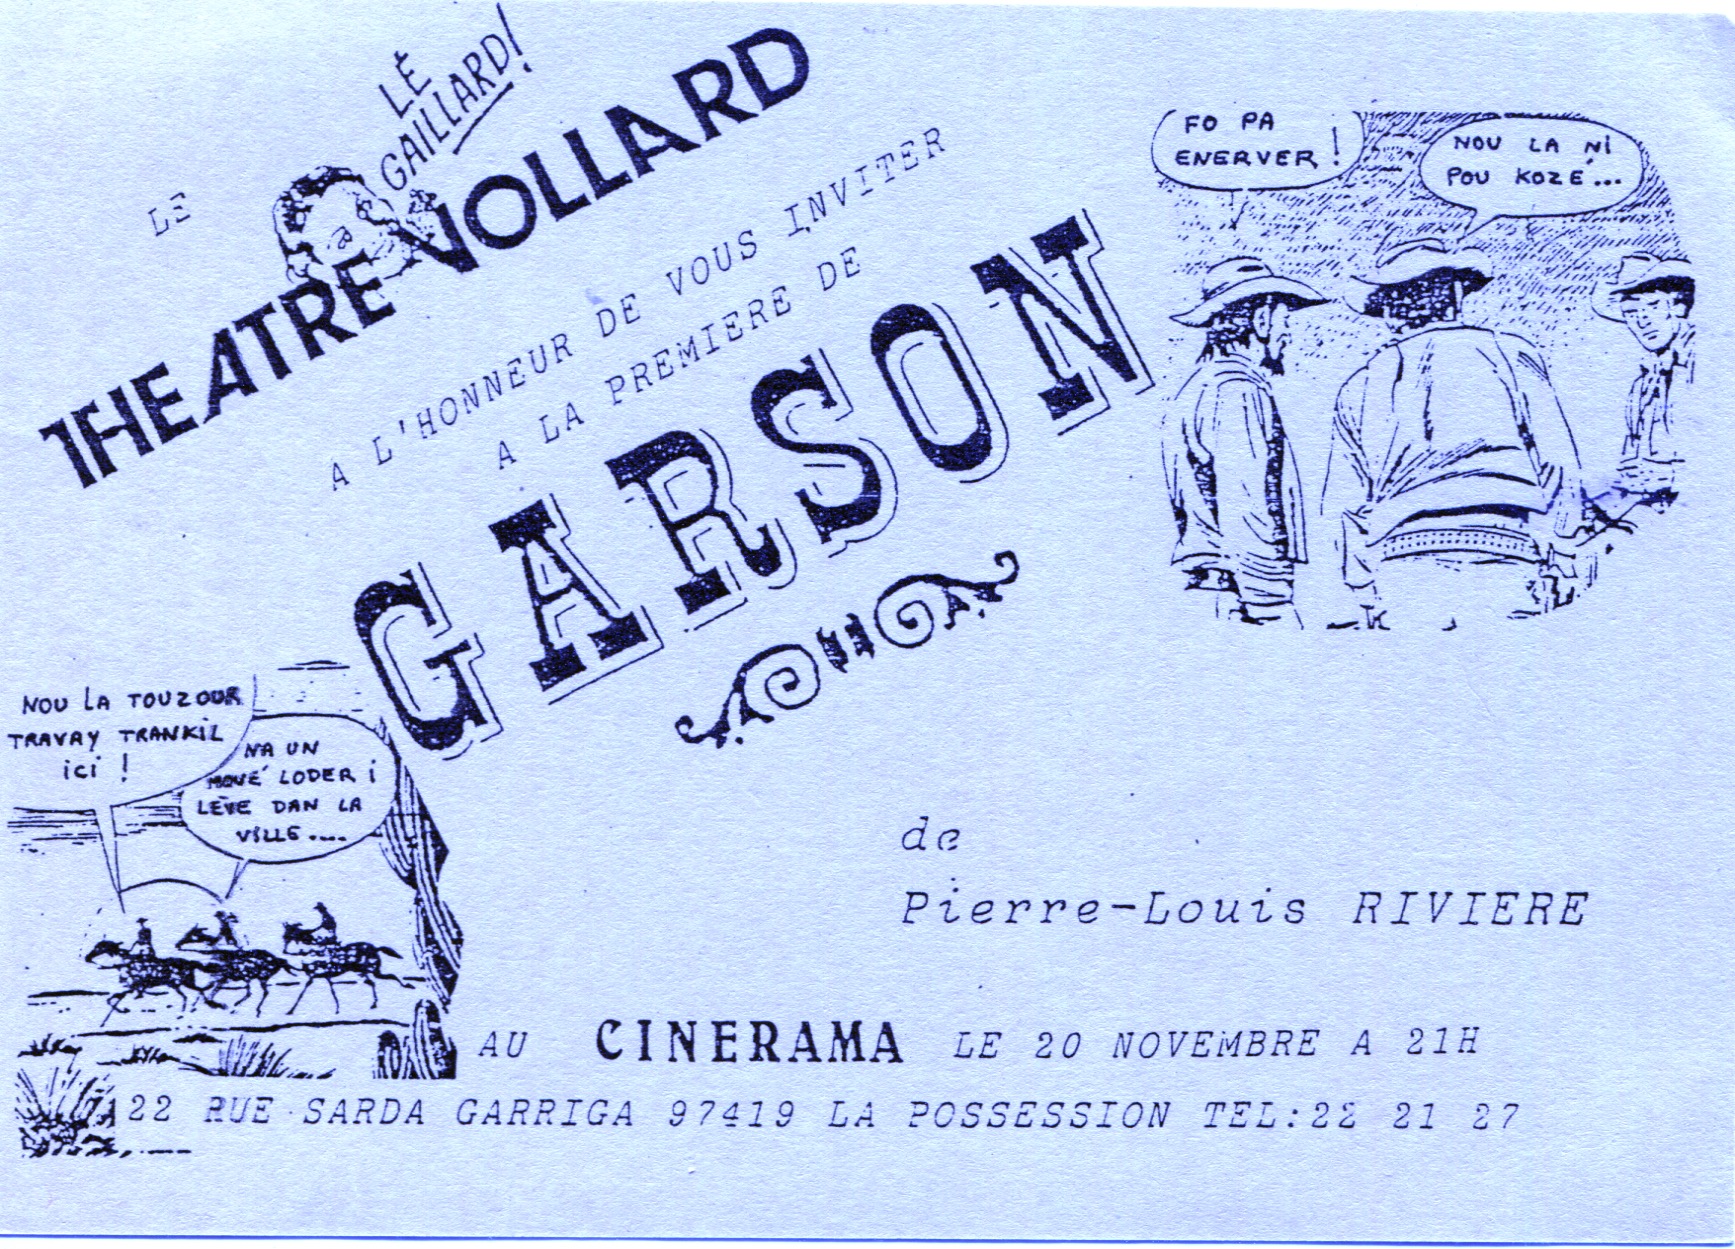 LÉ
GAILLARD!
LE
THEATRE VOLLARD
A L'HONNEUR DE VOUS INVITER
A LA PREMIERE DE
GARSON
FO PA
ENERVER !
NOU LA NI
POU KOZÉ...
NOU LA TOUZOUR
TRAVAY TRANKIL
ici !
NA UN
MOVÉ LODER i
LÈVE DAN LA
VILLE....
de
Pierre-Louis RIVIERE
AU CINERAMA LE 20 NOVEMBRE A 21H
22 RUE SARDA GARRIGA 97419 LA POSSESSION TEL:22 21 27